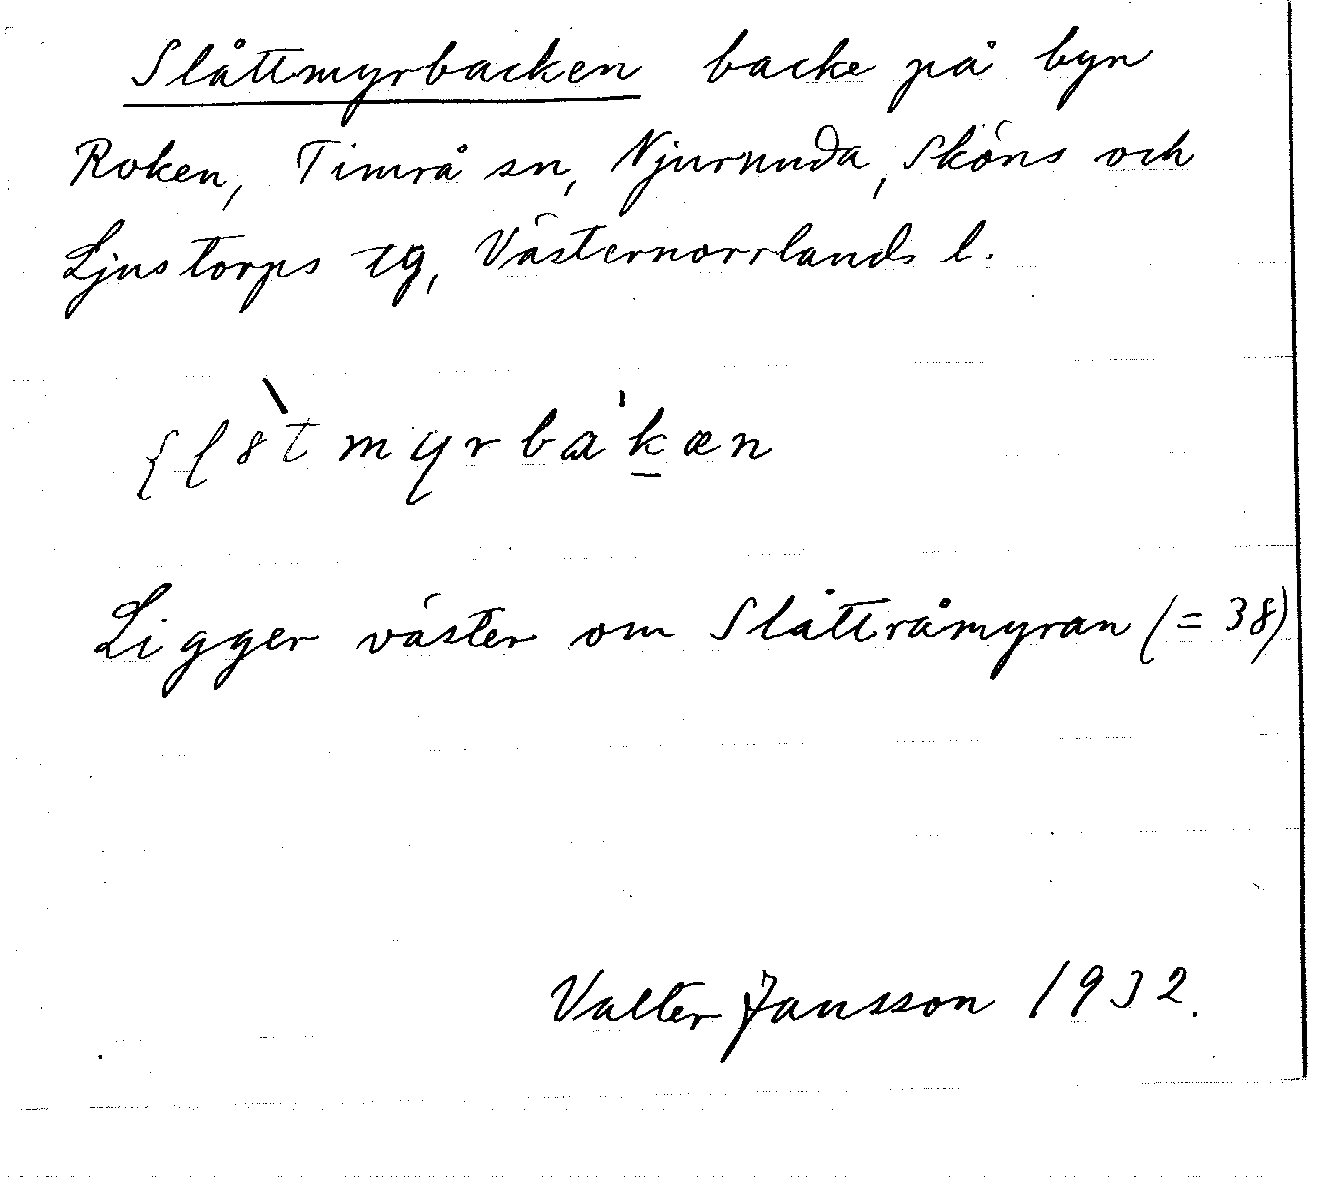 Slåttmyrbacken backe på byn
Roken, Timrå sn, Njurunda, Sköns och
Ljustorps tg, Västernorrlands l.
Ligger väster om Slåttråmyran (= 38)
Valter Jansson 1932.